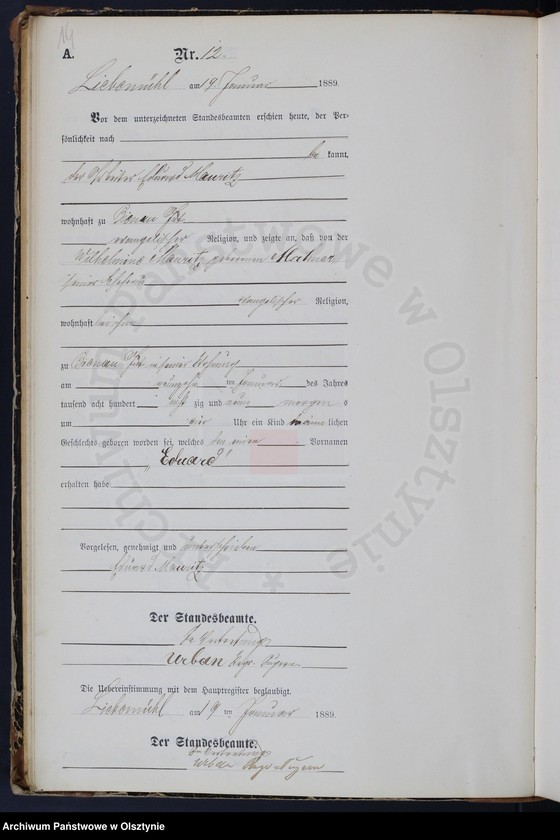 14
A.
Nr. 12
Liebemühl am 19. Januar 1889.
Vor dem unterzeichneten Standesbeamten erschien heute, der Per-
sönlichkeit nach
be kannt,
der Arbeiter Eduard Mauritz
wohnhaft zu
evangelischer Religion, und zeigte an, daß von der
Wilhelmine Mauritz geborenen
seiner Ehefrau
evangelischer Religion,
wohnhaft bei ihm
zu in seiner Wohnung
am im Januar des Jahres
tausend acht hundert acht zig und neun morgens
um vier Uhr ein Kind männ lichen
Geschlechts geboren worden sei, welches den einen Vornamen
„Eduard“
erhalten habe
Vorgelesen, genehmigt und unterschrieben
Eduard Mauritz
Der Standesbeamte.
In Vertretung
Urban
Die Uebereinstimmung mit dem Hauptregister beglaubigt.
Liebemühl am 19 ten Januar 1889.
Der Standesbeamte.
In Vertretung
Urban
* Archiwum Państwowe w Olsztynie
Archiwum Państwowe w Olsztynie